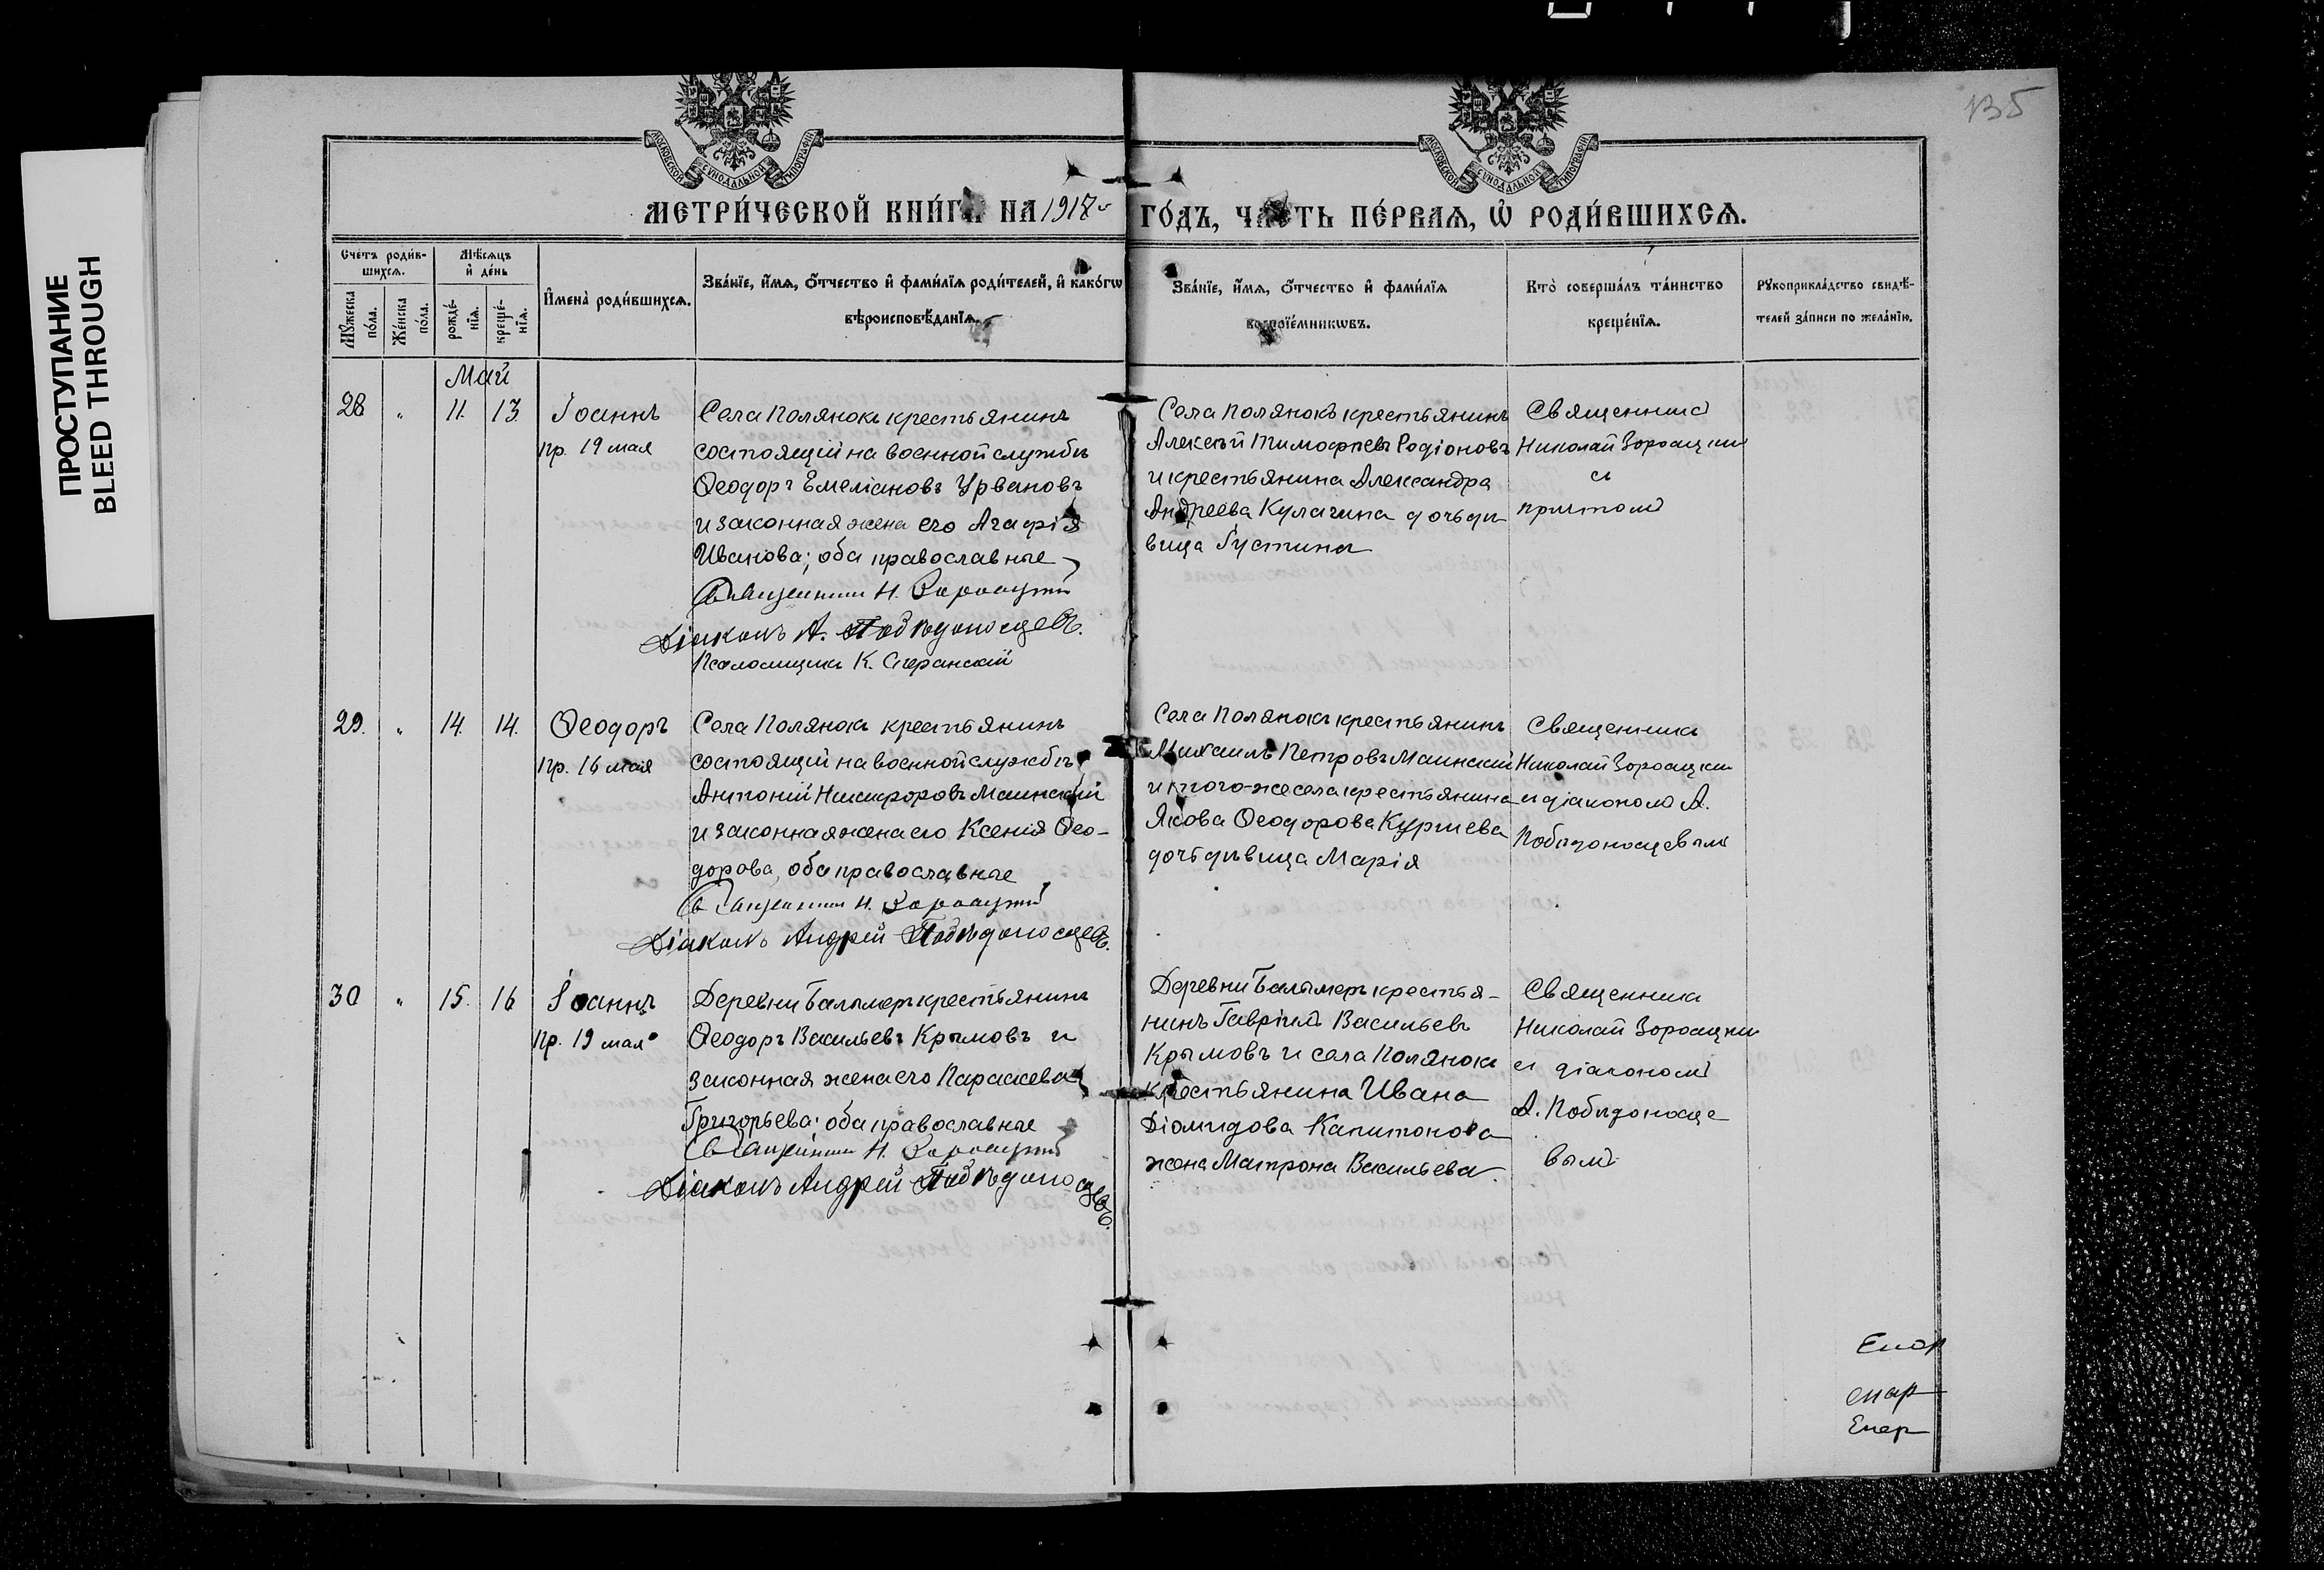 ПРОСТУПАНИЕ
BLEED THROUGH
135
МОСКОВСКОЙ СѴНОДАЛЬНОЙ ТИПОГРАФІИ
МОСКОВСКОЙ СѴНОДАЛЬНОЙ ТИПОГРАФІИ
МЕТРИ́ЧЕСКОЙ КНИ́ГИ НА 1917 ГО́ДЪ, ЧА́СТЬ ПЕ́РВАЯ, Ѡ҆ РОДИ́ВШИХСЯ.
Сче́тъ роди́в-
шихся.
Мꙋ́жеска по́ла.
Же́нска по́ла.
Мѣ́сяцъ
и҆ де́нь
рожде́-
нїя.
креще́-
нїя.
И҆мена̀ роди́вшихся.
Зва́нїе, и҆́мя, ѻ҆́тчество и҆ фами́лїя роди́телей, и҆ како́гѡ
вѣроисповѣ́данїя.
Зва́нїе, и҆́мя, ѻ҆́тчество и҆ фами́лїя
воспрїе́мникѡвъ.
Кто̀ соверша́лъ та́инство
креще́нїя.
Рꙋкоприкла́дство свидѣ́-
телей за́писи по жела́нїю.
Май
28 " 11. 13. Іоаннъ
пр. 19 мая
Села Полянокъ крестьянинъ
состоящій на военной службѣ
Ѳеодоръ Емеліановъ Урвановъ
и законная жена его Агафія
Иванова; оба православные
Священникъ Н.
Діаконъ А. Побѣдоносцевъ.
Псаломщикъ К. Сперанскій
Села Полянокъ крестьянинъ
Алексѣй Тимофѣевъ Родіоновъ
и крестьянина Александра
Андреева Кулагина дочь дѣ
вица Іустина
Священникъ
Николай
съ
причтомъ
29. " 14. 14. Ѳеодоръ
пр. 16 мая
Села Полянокъ крестьянинъ
состоящій на военной службѣ
Антоній Никифоровъ Маинскій
и законная жена его Ксенія Ѳео-
дорова, оба православные
Священникъ Н.
Діаконъ Андрей Побѣдоносцевъ.
Села Полянокъ крестьянинъ
Михаилъ Петровъ Маинскій
и того-же села крестьянина
Якова Ѳеодорова Куршева
дочь дѣвица Марія
Священникъ
Николай
съ діакономъ А.
Побѣдоносцевымъ
30 " 15. 16 Іоаннъ
пр. 19 мая
Деревни Балымеръ крестьянинъ
Ѳеодоръ Васильевъ Крымовъ и
законная жена его Параскева
Григорьева; оба православные
Священникъ Н.
Діаконъ Андрей Побѣдоносцевъ.
Деревни Балымеръ крестья-
нинъ Гавріилъ Васильевъ
Крымовъ и села Полянокъ
крестьянина Ивана
Діомидова Капитонова
жена Матрона Васильева.
Священникъ
Николай
съ діакономъ
А. Побѣдоносце
вымъ